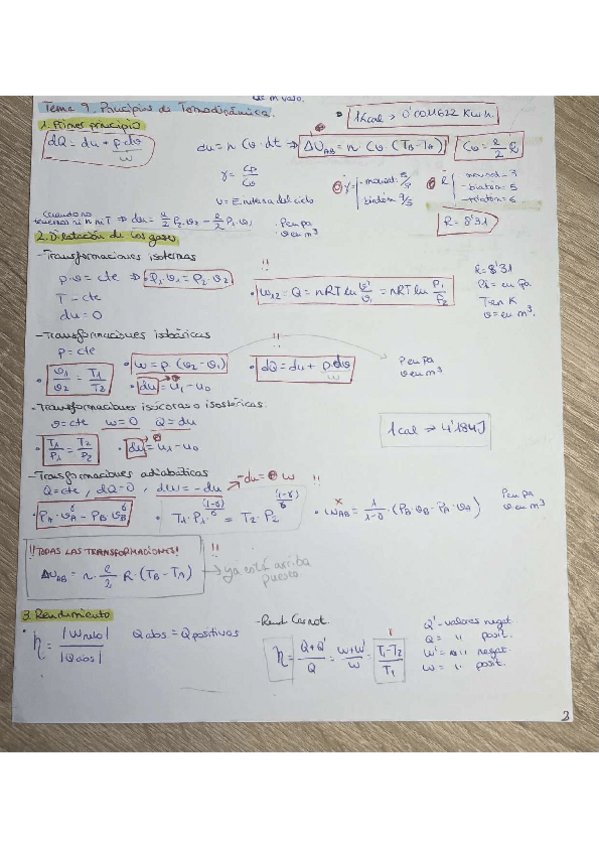 Tema 9. Principios de Termodinámica.
1 Kcal → 0'0011622 Kwh
1. Primer principio
dQ = du + p dv
w
du = n Cv · dt ⇒ ΔU_AB = n Cv (T_B - T_A)
Cv = l/2 R
γ = Cp/Cv
γ = monoat: 5/3
biatóm: 7/5
l - monoat = 3
- biatóm = 5
- poliatóm = 6
U = Energía del ciclo
Cuando no
tenemos ni n ni T ⇒ du = l/2 P2·v2 - l/2 P1·v1
P en pa
v en m³
R = 8'31
2. Dilatación de los gases
- Transformaciones isotermas
!!
p·v = cte ⇒ · P1·v1 = P2·v2
· W12 = Q = nRT ln v2/v1 = nRT ln P1/P2
T = cte
du = 0
R = 8'31
Pi = en Pa
T en K
v = en m³.
- Transformaciones isobáricas
!!
p = cte
· v1/v2 = T1/T2
· w = p (v2 - v1)
· du = u1 - u0
· dQ = du + p dv
w
P en Pa
v en m³
- Transformaciones isócoras o isostéricas.
v = cte w = 0 Q = du
· T1/P1 = T2/P2
· du = u1 - u0
1 cal → 4'184 J
- Transformaciones adiabáticas
Q = cte, dQ = 0, dW = -du → -du = w !!
· P_A·v_A^γ = P_B·v_B^γ
· T1·P1^(1-γ)/γ = T2·P2^(1-γ)/γ
x
· W_AB = 1/1-γ · (P_B·v_B - P_A·v_A)
P en pa
v en m³
!! TODAS LAS TRANSFORMACIONES!
ΔU_AB = n · l/2 R · (T_B - T_A)
→ ya está arriba
puesto
3. Rendimiento
· η = |W ciclo| / |Q abs|
Q abs = Q positivas
- Rend Carnot.
η = Q+Q'/Q = w+w'/w = T1-T2/T1
Q' - valores negat
Q = '' posit.
w' = '' negat.
w = '' posit.
3